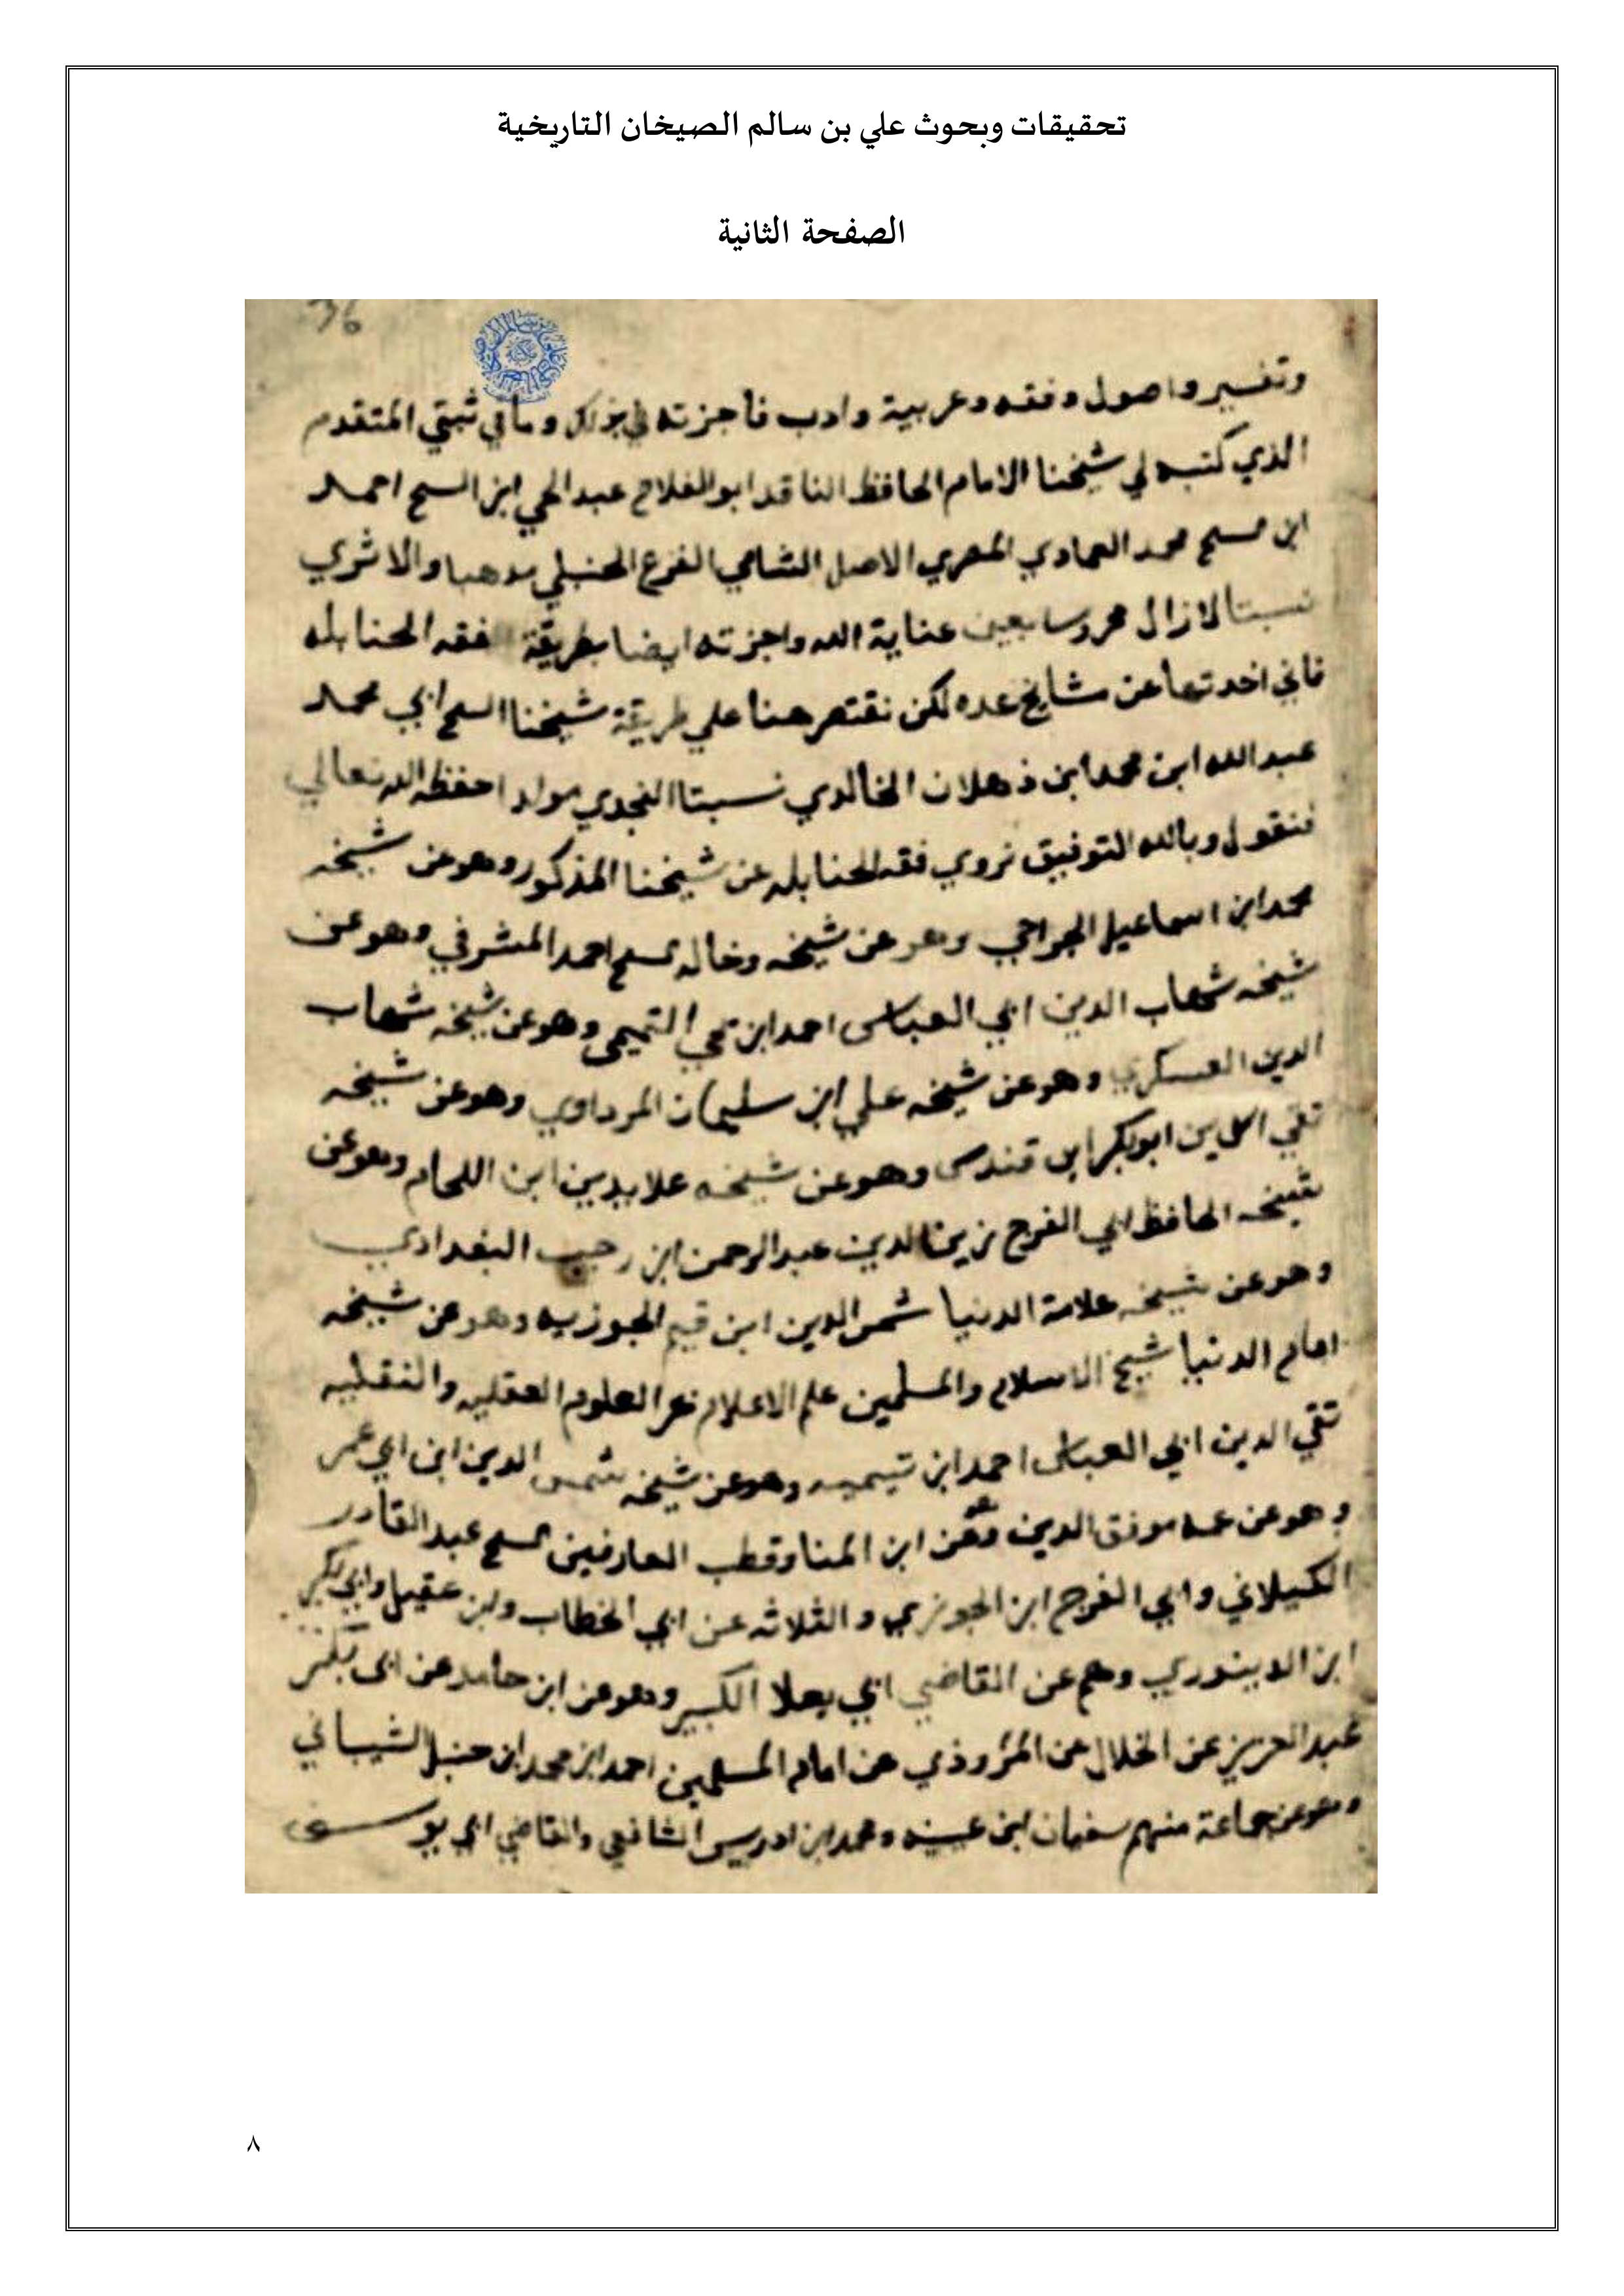 تحقيقات وبحوث علي بن سالم الصيخان التاريخية
الصفحة الثانية
36
وتفسير واصول وفقه وعربية وادب فأجزته في ذلك وما في ثبتي المتقدم
الذي كتبه لي شيخنا الامام الحافظ الناقد ابو الفلاح عبد الحي ابن الشيخ احمد
ابن محمد العمادي المصري الاصل الشامي الفرع الحنبلي مذهبا والاثري
نسبتا لازال محروسا بعين عناية الله واجزته ايضا بطريقة فقه الحنابله
فاني اخدتها عن مشايخ عده لكن نقتصر هنا علي طريقة شيخنا الشيخ ابي محمد
عبد الله ابن محمد ابن ذهلان الخالدي نسبتا النجدي مولدا حفظه الله تعالي
فنقول وبالله التوفيق نروي فقه الحنابله عن شيخنا المذكور وهو عن شيخه
محمد ابن اسماعيل وهو عن شيخه وخاله احمد المشرفي وهو عن
شيخه شهاب الدين ابي العباس احمد ابن التميمي وهو عن شيخه شهاب
الدين العسكري وهو عن شيخه علي ابن سليمان المرداوي وهو عن شيخه
تقي الدين ابو بكر ابن قندس وهو عن شيخه علا بدين ابن اللحام وهو عن
شيخه الحافظ ابي الفرج زين الدين عبد الرحمن ابن رجب البغدادي
وهو عن شيخه علامة الدنيا شمس الدين ابن قيم الجوزيه وهو عن شيخه
امام الدنيا شيخ الاسلام والمسلمين علم الاعلام العلوم العقليه والنقليه
تقي الدين ابي العباس احمد ابن تيميه وهو عن شيخه شمس الدين ابن ابي عمر
وهو عن عمه موفق الدين وهو عن ابن المنا وقطب العارفين عبد القادر
الكيلاني وابي الفرج ابن الجوزي والثلاثه عن ابي الخطاب وابن عقيل وابي بكر
ابن الدينوري وهم عن القاضي ابي يعلا الكبير وهو عن ابن حامد عن ابي بكر
عبد العزيز عن الخلال عن المروذي عن امام المسلمين احمد ابن محمد ابن حنبل الشيباني
وهو عن جماعة منهم سفيان ابن عيينه ومحمد ابن ادريس الشافعي والقاضي ابي يوسف
٨